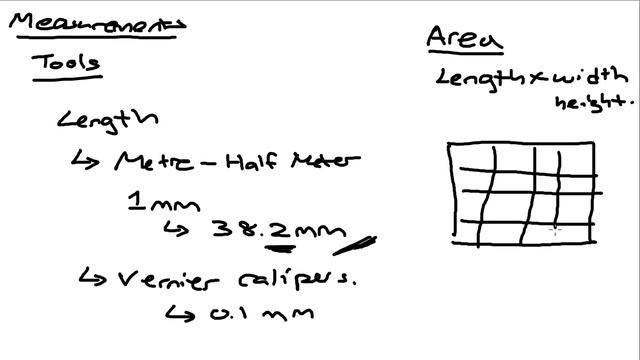 Measurements
Tools
Length
↳ Metre - Half Meter
1mm
↳ 38.2mm
↳ Vernier calipers.
↳ 0.1 mm
Area
Length × width
height.